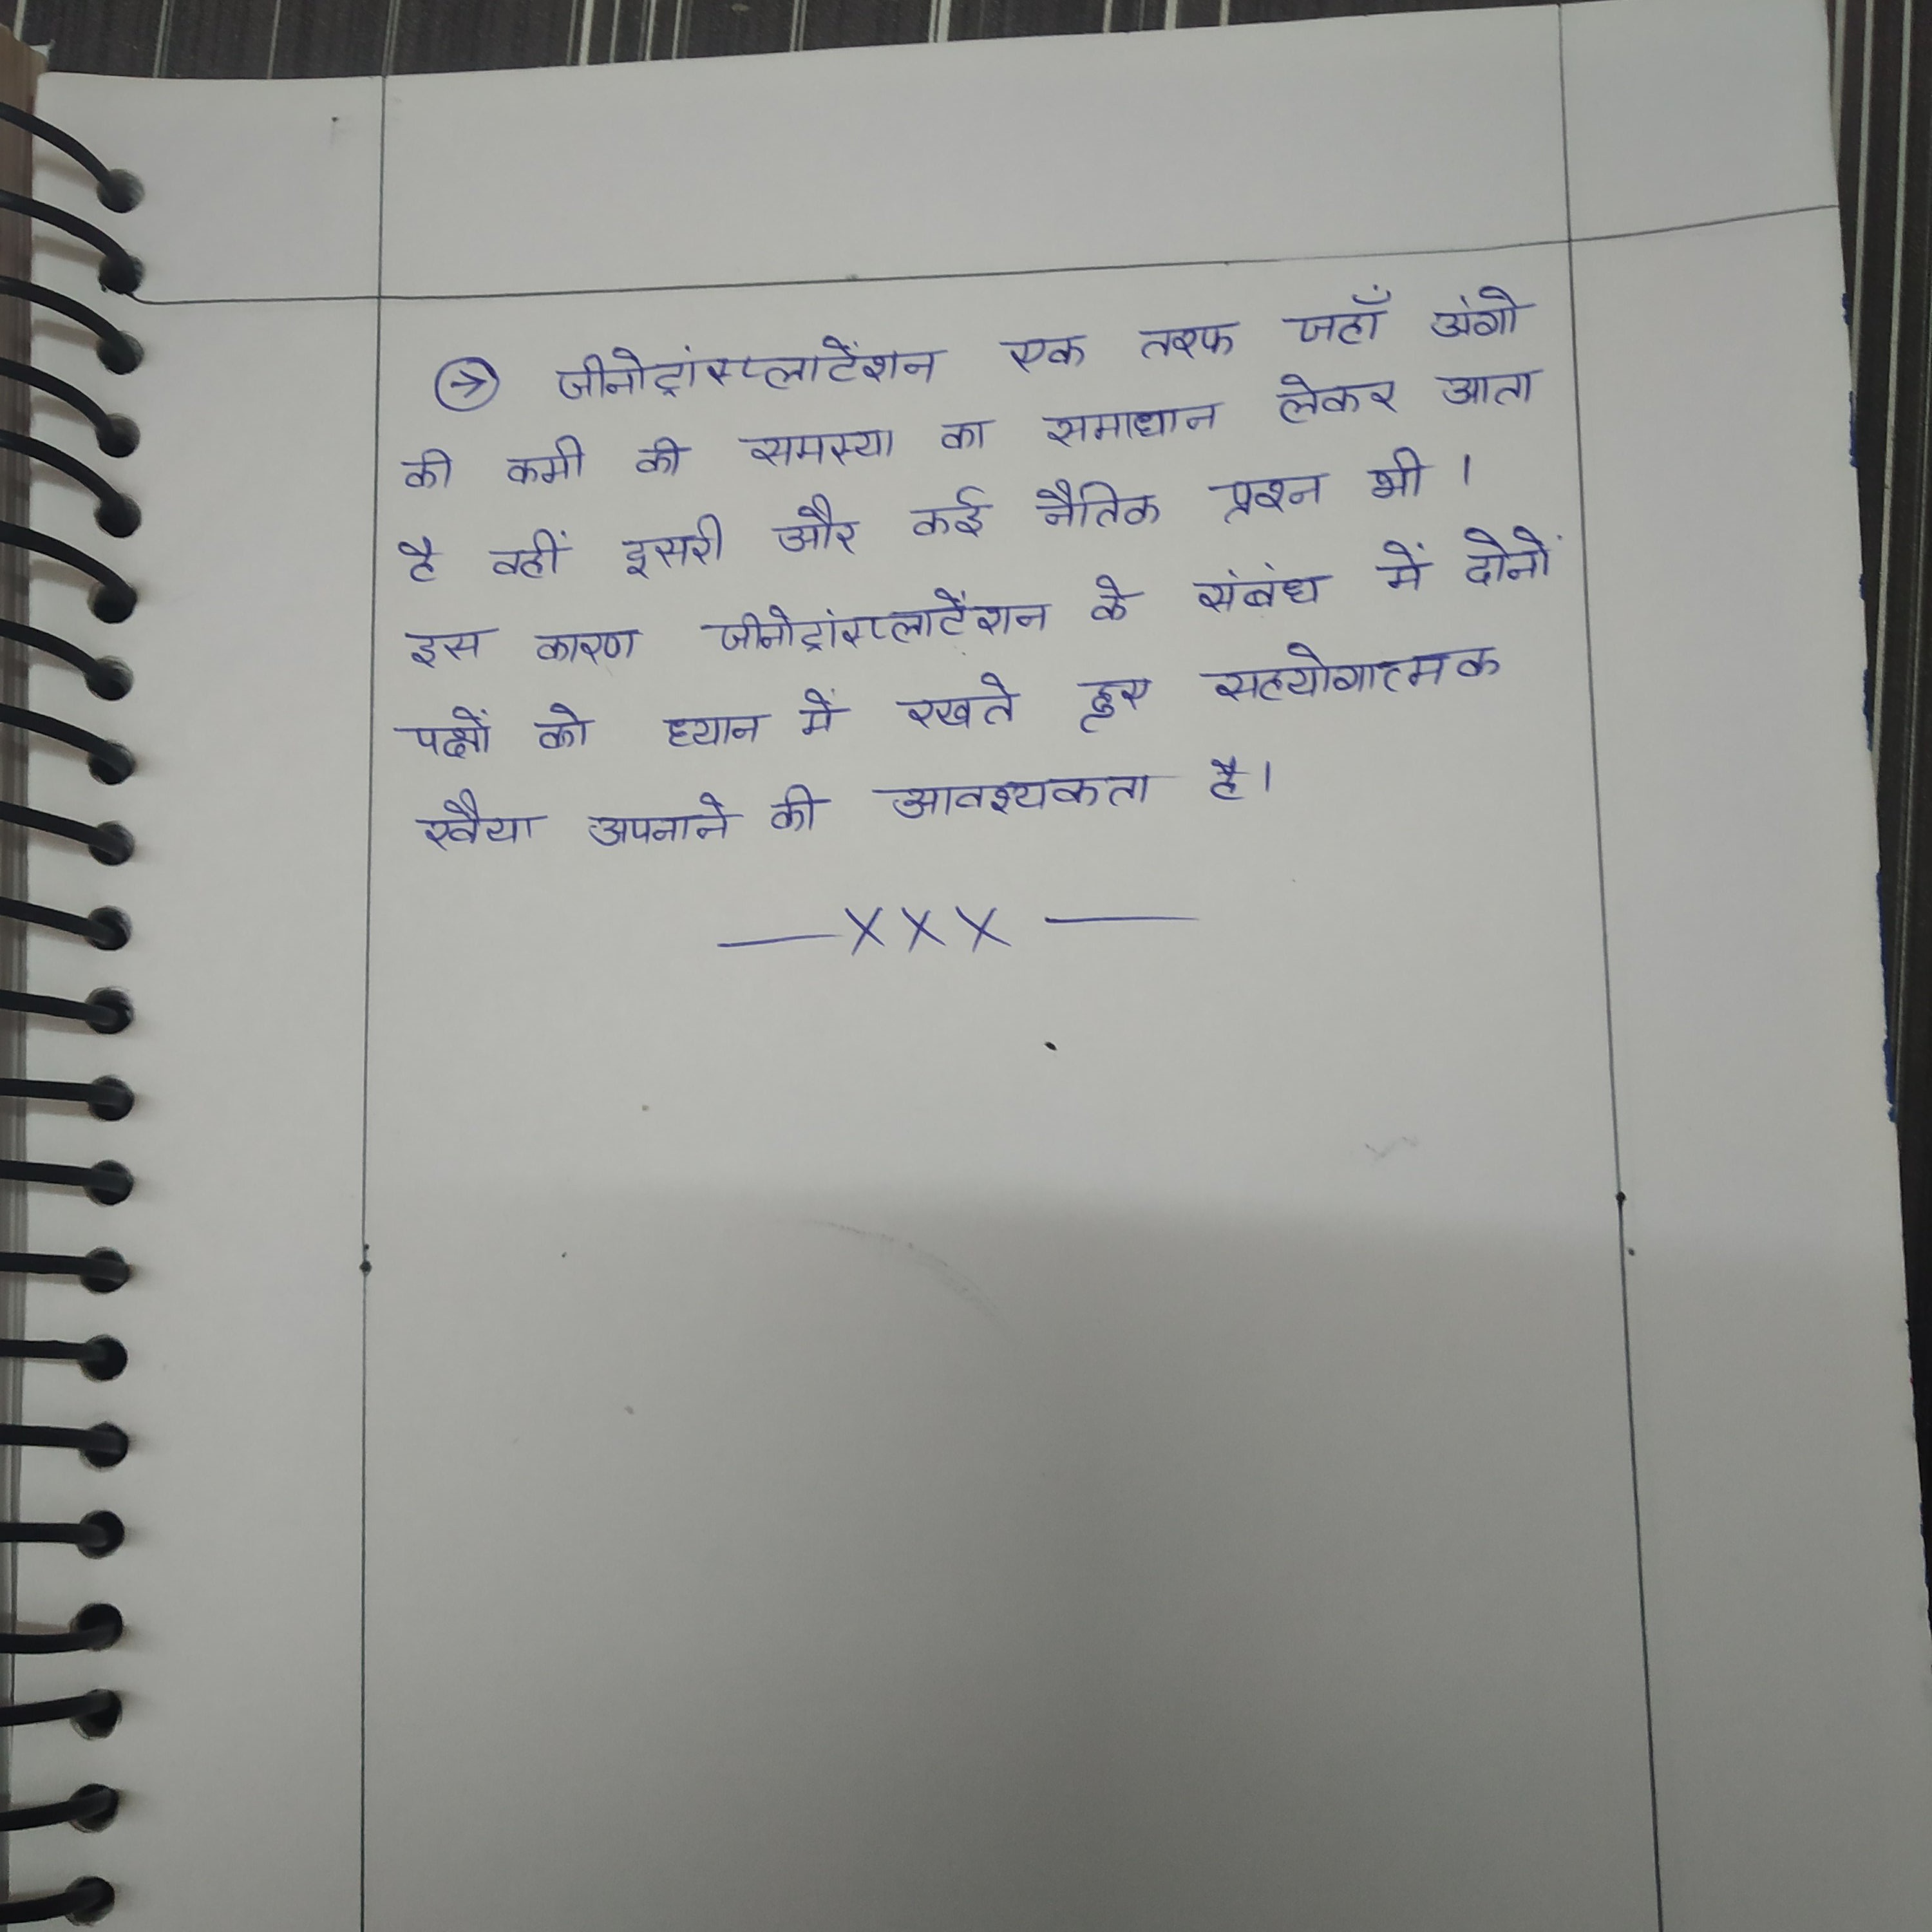 → जीनोट्रांस्प्लाटेंशन एक तरफ जहाँ अंगो
की कमी की समस्या का समाधान लेकर आता
है वहीं इसरी और कई नैतिक प्रश्न भी ।
इस कारण जीनोट्रांस्प्लाटेंशन के संबंध में दोनों
पक्षों को ध्यान में रखते हुए सहयोगात्मक
रवैया अपनाने की आवश्यकता है।
—XXX—